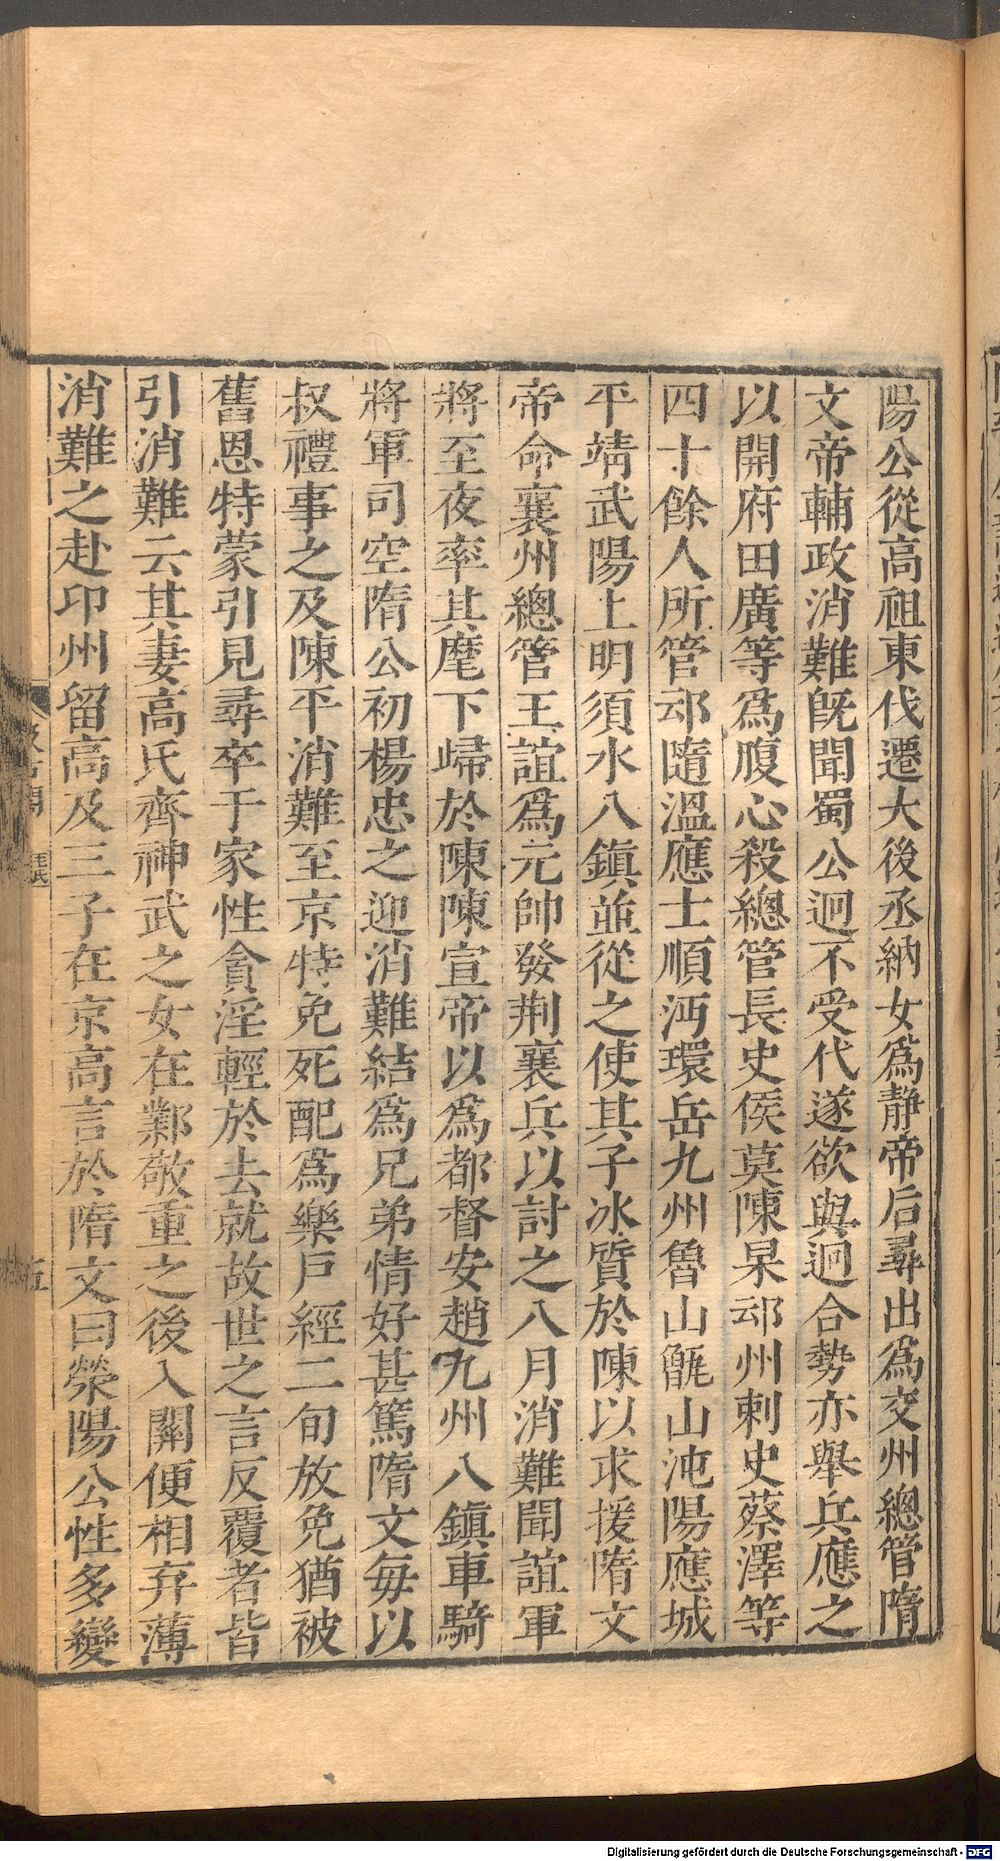 陽公從高祖東伐遷大後丞納女爲靜帝后尋出爲交州總管隋
文帝輔政消難旣聞蜀公迥不受代遂欲與迥合勢亦舉兵應之
以開府田廣等爲腹心殺總管長史侯莫陳杲邔州刺史蔡澤等
四十餘人所管邔隨溫應士順沔環岳九州魯山甑山沌陽應城
平靖武陽上明須水八鎭並從之使其子冰質於陳以求援隋文
帝命襄州總管王誼爲元帥發荆襄兵以討之八月消難聞誼軍
將至夜率其麾下歸於陳陳宣帝以爲都督安趙九州八鎭車騎
將軍司空隋公初楊忠之迎消難結爲兄弟情好甚篤隋文每以
叔禮事之及陳平消難至京特免死配爲樂戶經二旬放免猶被
舊恩特蒙引見尋卒于家性貪淫輕於去就故世之言反覆者皆
引消難云其妻高氏齊神武之女在鄴敬重之後入關便相弃薄
消難之赴邔州留高及三子在京高言於隋文曰滎陽公性多變
五
Digitalisierung gefördert durch die Deutsche Forschungsgemeinschaft - DFG